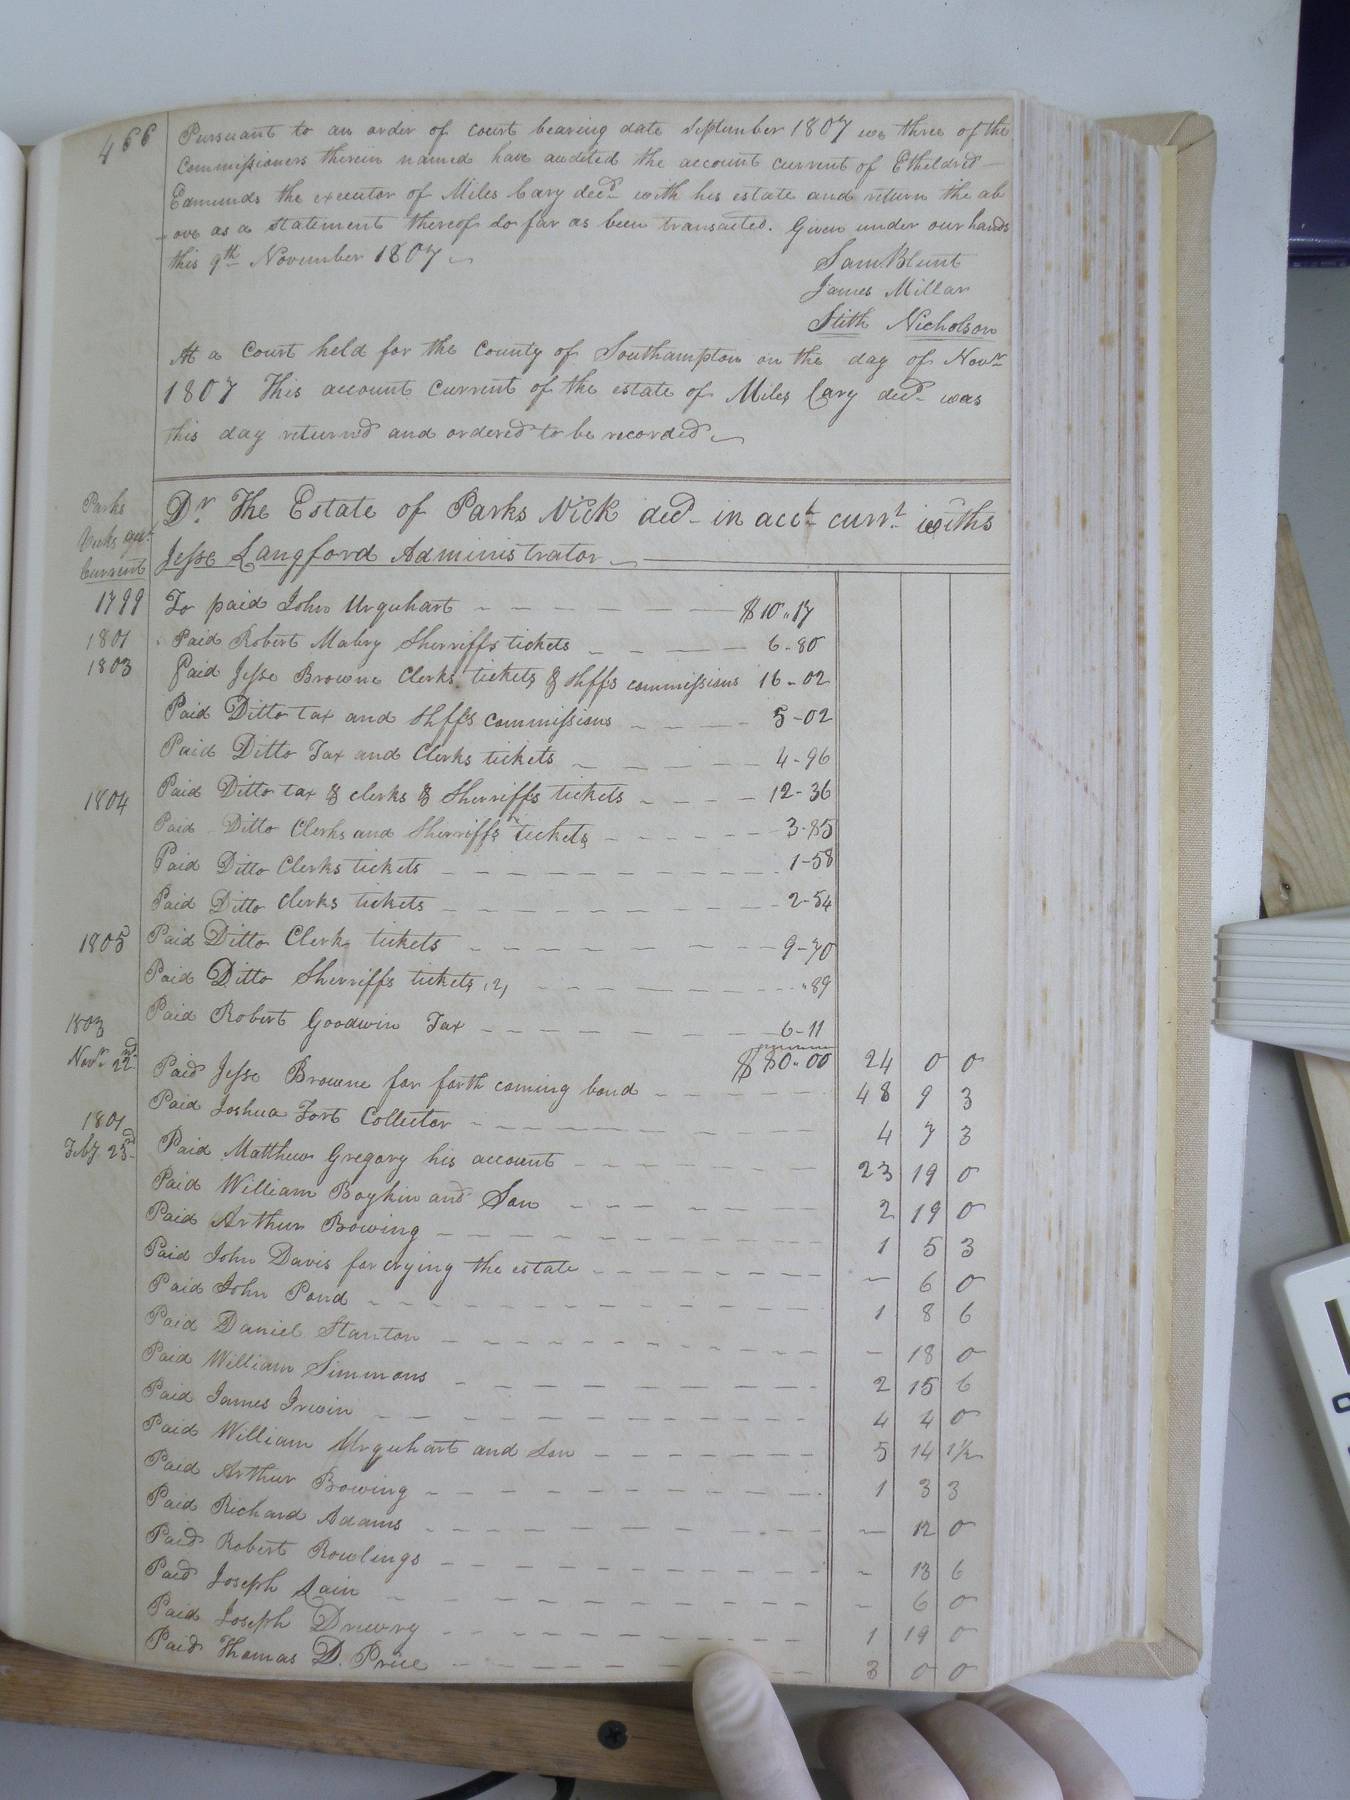 466
Pursuant to an order of court bearing date September 1807 we three of the
Commissioners therein named have audited the account current of Etheldred
Edmunds the executor of Miles Cary decd with his estate and return the ab
ove as a statement thereof so far as been transacted. Given under our hands
this 9th November 1807
Sam Blunt
James Millar
Stith Nicholson
At a Court held for the County of Southampton on the day of Novr
1807 This account current of the estate of Miles Cary decd was
this day returned and ordered to be recorded
Parks
Current
Dr The Estate of Parks Nick decd in acct currt withs
Jesse Langford Administrator
1799 To paid John Urquhart $10..17
1801 Paid Robert Mabry Sherriffs tickets 6-80
1803 Paid Jesse Browne Clerks tickets & Shffs commissions 16-02
Paid Ditto tax and Shffs commissions 5-02
Paid Ditto Tax and Clerks tickets 4-96
1804 Paid Ditto tax & clerks & Sherriffs tickets 12-36
Paid Ditto Clerks and Sherriffs tickets 3-85
Paid Ditto Clerks tickets 1-58
Paid Ditto Clerks tickets 2-54
1805 Paid Ditto Clerks tickets 9-70
Paid Ditto Sherriffs tickets ,2, .89
Paid Robert Goodwin Tax 6-11
1803
$80..00 24 0 0
Novr 22nd Paid Jesse Browne for forth coming bond 48 9 3
Paid Joshua Fort Collector 4 7 3
1801
Feby 23d Paid Matthew Gregory his account 23 19 0
Paid William Boykin and Son 2 19 0
Paid Arthur Bowing 1 5 3
Paid John Davis for crying the estate - 6 0
Paid John Pond 1 8 6
Paid Daniel Stanton - 18 0
Paid William Simmons 2 15 6
Paid James Irwin 4 4 0
Paid William Urquhart and Son 5 14 1½
Paid Arthur Bowing 1 3 3
Paid Richard Adams - 12 0
Paid Robert Rowlings - 13 6
Paid Joseph Lain - 6 0
Paid Joseph Drewry 1 19 0
Paid Thomas D. Price 3 0 0